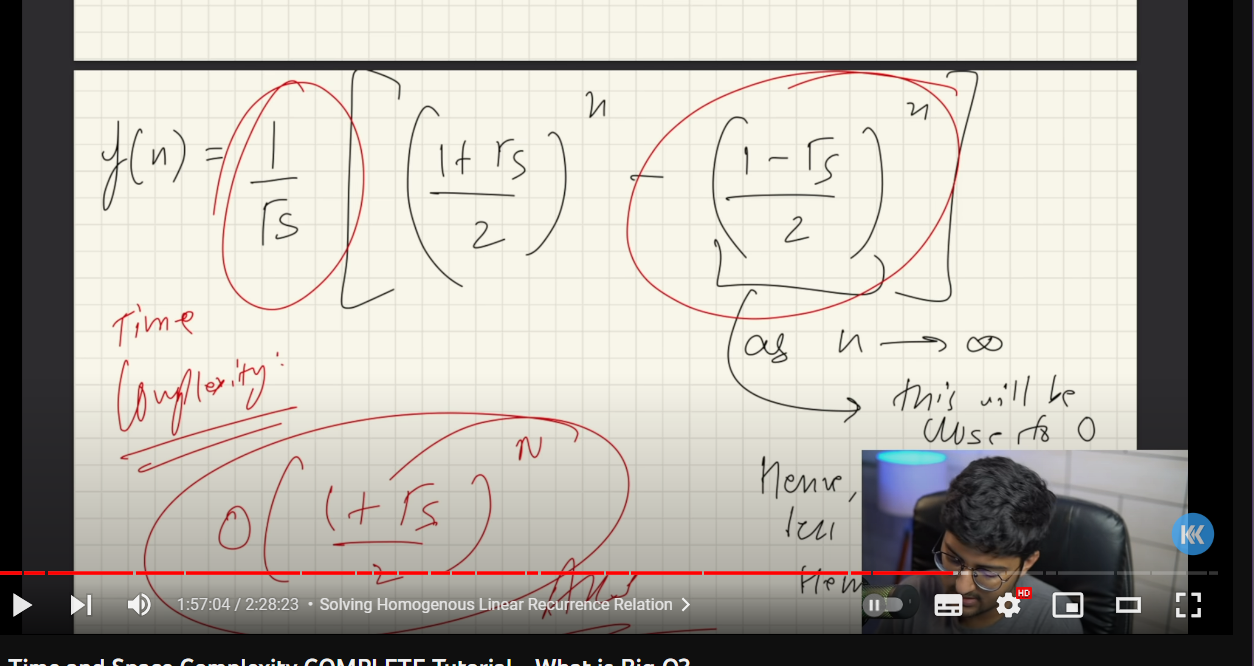 f(n) = 1/√5 [ ( (1+√5)/2 )^n − ( (1−√5)/2 )^n ]
as n → ∞
this will be
close to 0
Time
Complexity:
O( (1+√5)/2 )^N
Ans
Hence,
HD
1:57:04 / 2:28:23 • Solving Homogenous Linear Recurrence Relation
Time and Space Complexity COMPLETE Tutorial - What is Big O?